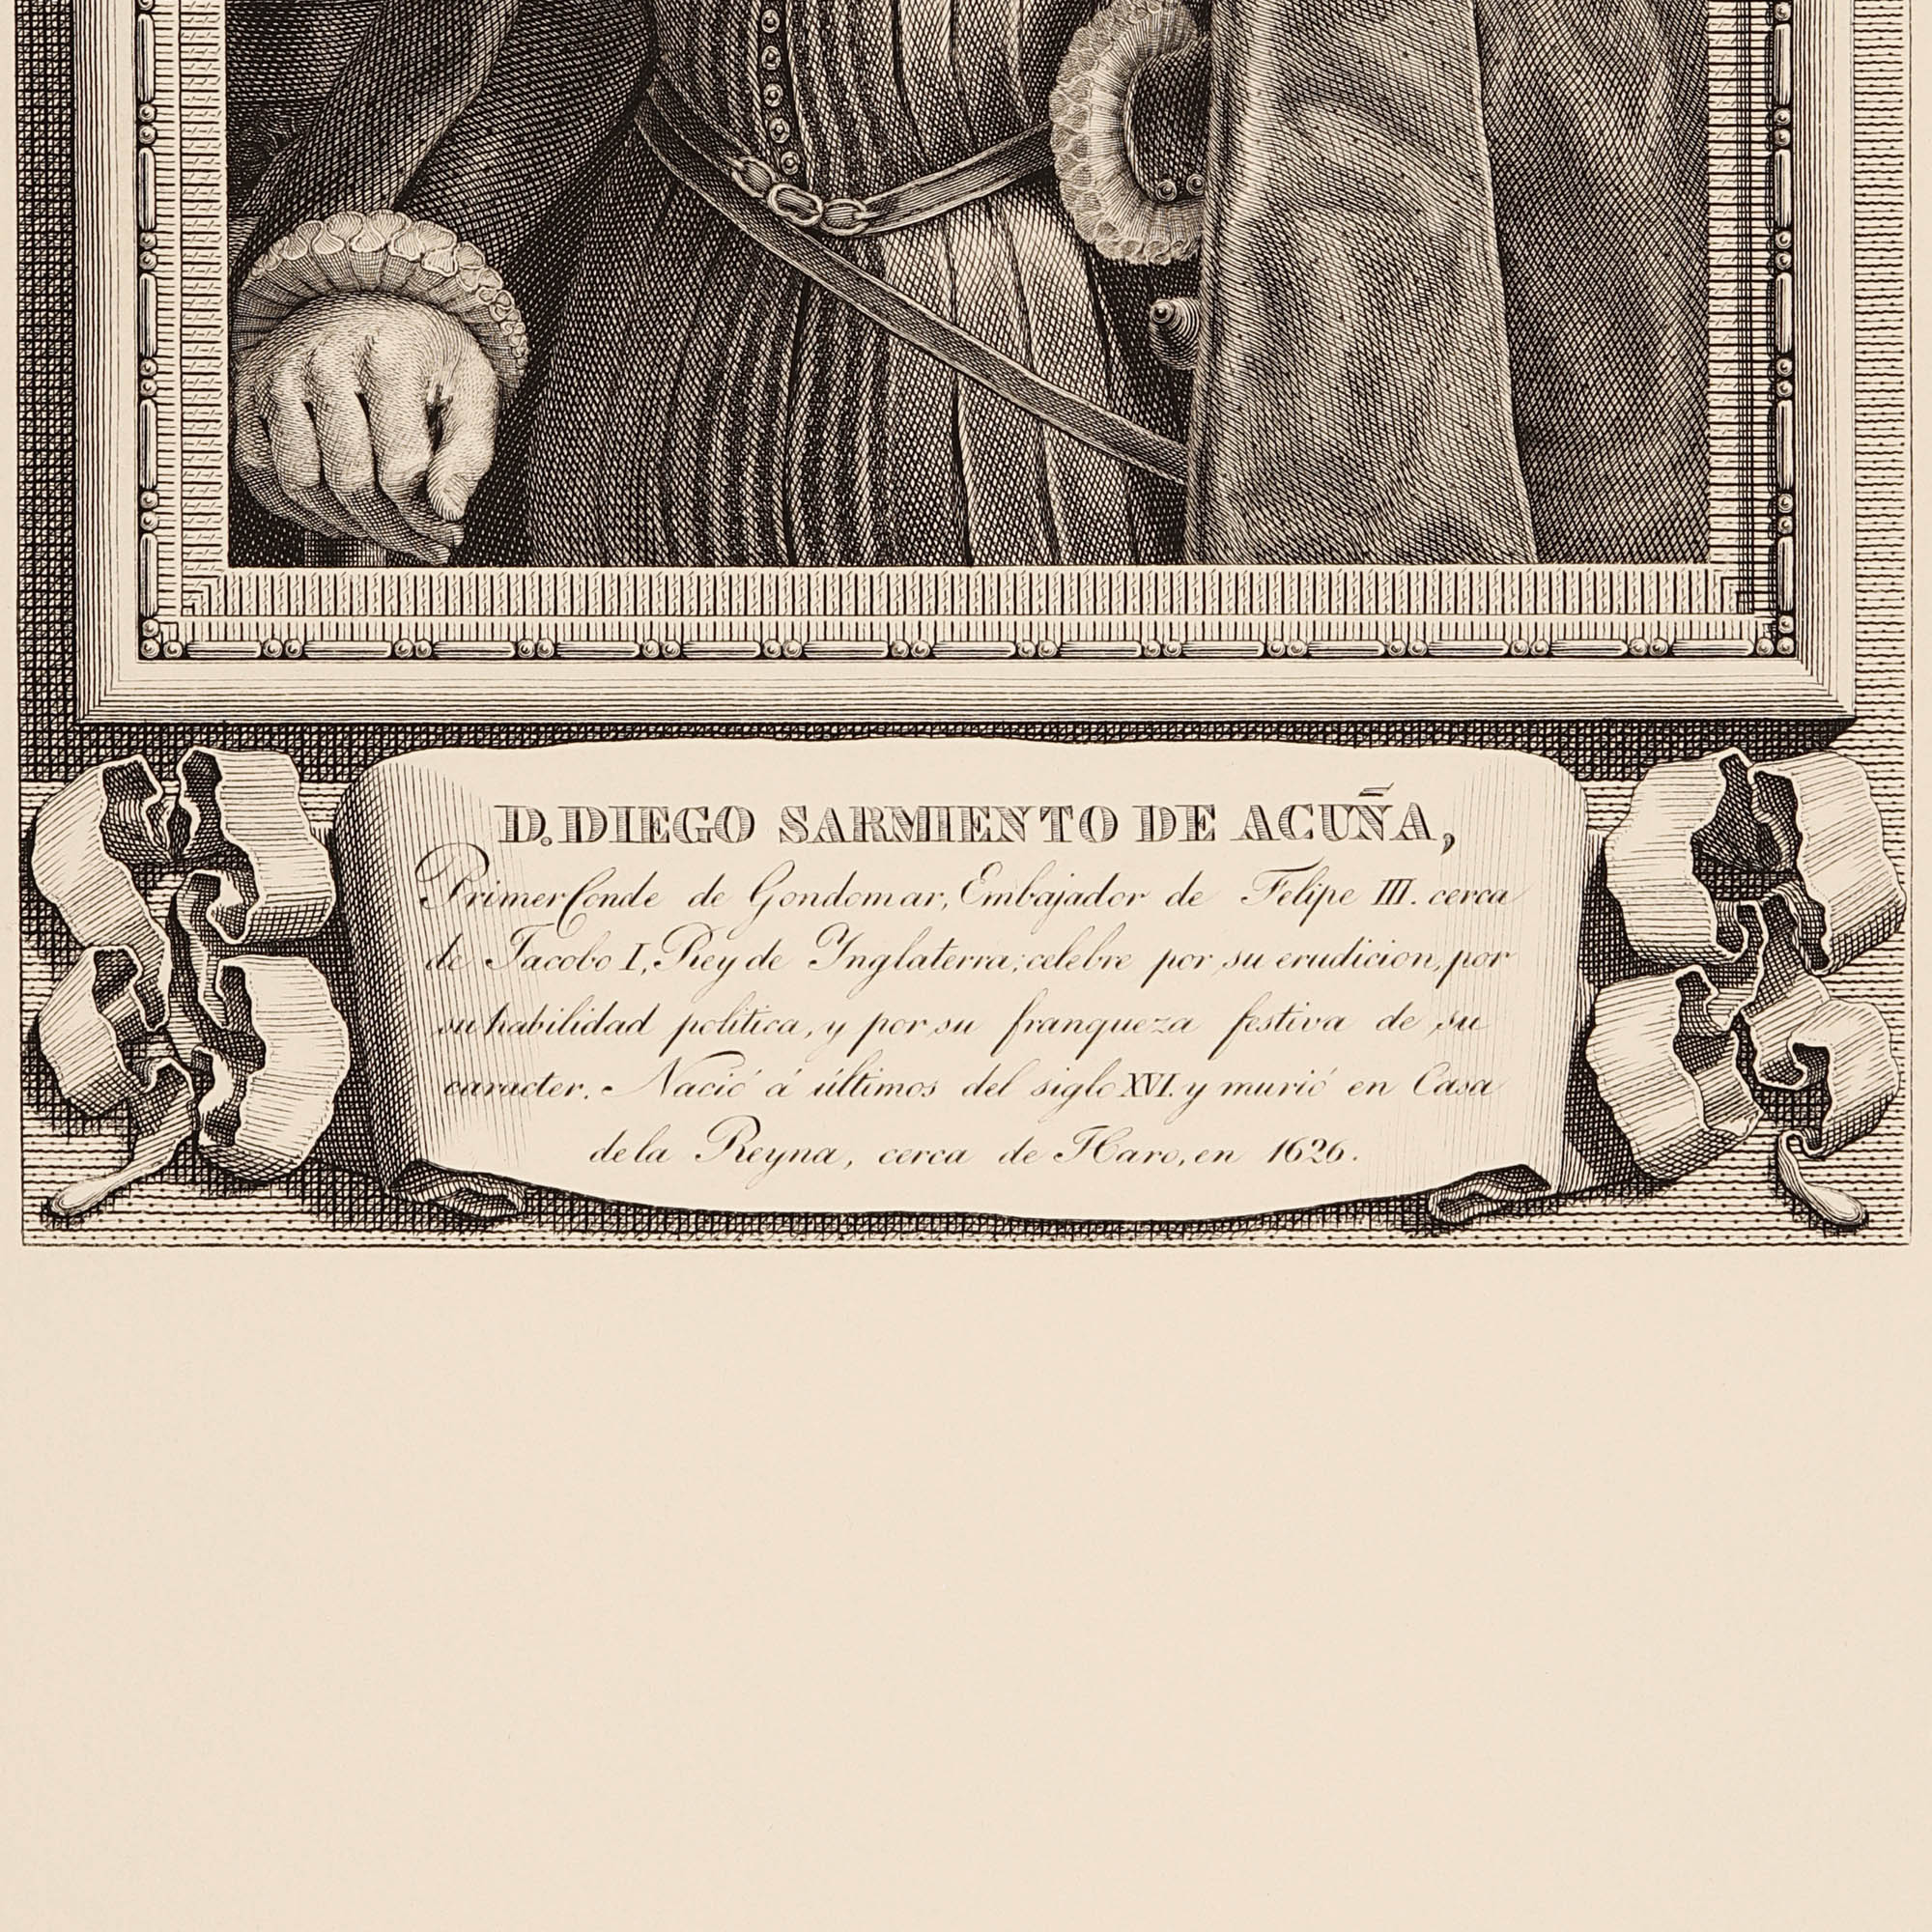 D. DIEGO SARMIENTO DE ACUÑA,
Primer Conde de Gondomar, Embajador de Felipe III. cerca
de Jacobo I, Rey de Ynglaterra; celebre por su erudicion, por
su habilidad política, y por su franqueza festiva de su
caracter. Nació á últimos del siglo XVI. y murió en Casa
de la Reyna, cerca de Haro, en 1626.